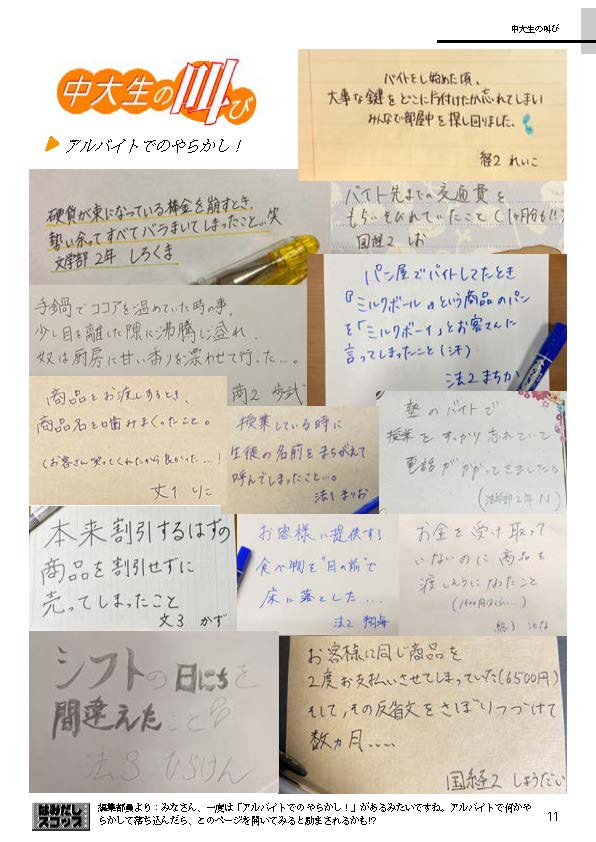 中大生の叫び
中大生の叫び
アルバイトでのやらかし!
バイトをし始めた頃、
大事な鍵をどこに片付けたか忘れてしまい
みんなで部屋中を探し回りました。
経2 れいこ
硬貨が束になっている棒金を崩すとき、
勢い余ってすべてバラまいてしまったこと…笑
文学部2年 しろくま
バイト先までの交通費を
もらいそびれていたこと(1ヶ月分も!!)
国経2 しお
手鍋でココアを温めていた時の事。
少し目を離した隙に沸騰し溢れ、
奴は厨房に甘い香りを漂わせて行った…。
商2 歩武
パン屋でバイトしてたとき
『ミルクボール』という商品のパン
を「ミルクボーイ」とお客さんに
言ってしまったこと(汗)
法2 まちか
商品をお渡しするとき、
商品名を噛みまくったこと。
(お客さん笑ってくれたから良かった…!
文1 りこ
授業している時に
生徒の名前をまちがえて
呼んでしまったこと…。
法1 まりお
塾のバイトで
授業をすっかり忘れていて
電話がかかってきました。
(法学部2年 N)
本来割引するはずの
商品を割引せずに
売ってしまったこと
文3 かず
お客様に提供する
食べ物を"目の前"で
床に落とした…
法2
お金を受け取って
いないのに商品を
渡しそうになったこと
シフトの日にちを
間違えたこと
法3 ひらけん
お客様に同じ商品を
2度お支払いさせてしまっていた(6500円)
そして、その反省文をさぼりつづけて
数ヵ月....
国経2 しょうだい
はみだしスコップ
編集部員より:みなさん、一度は「アルバイトでのやらかし!」があるみたいですね。アルバイトで何かや
らかして落ち込んだら、このページを開いてみると励まされるかも!?
11